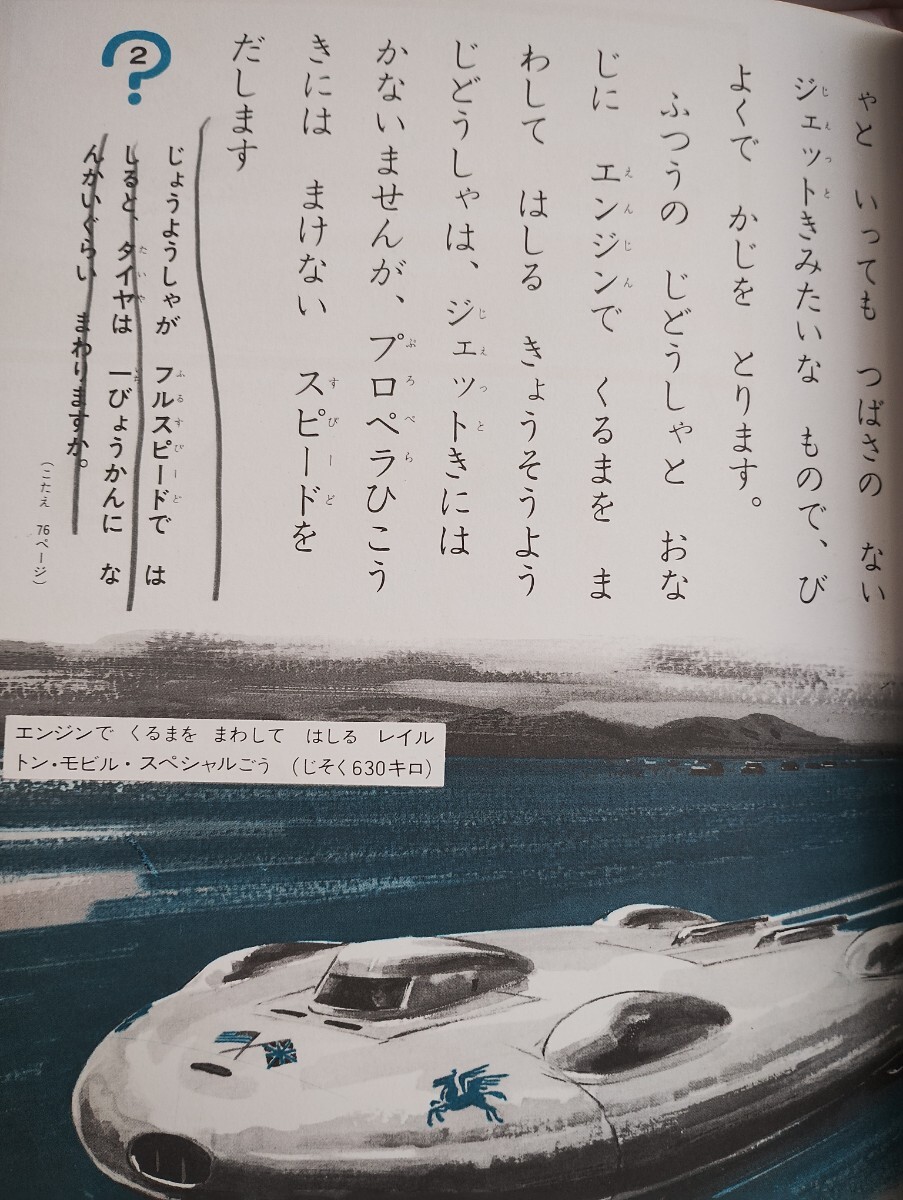 ゃと いっても つばさの ない
ジェットきみたいな もので、び
よくで かじを とります。
ふつうの じどうしゃと おな
じに エンジンで くるまを ま
わして はしる きょうそうよう
じどうしゃは、ジェットきには
かないませんが、プロペラひこう
きには まけない スピードを
だします
2
じょうようしゃが フルスピードで は
しると、タイヤは 一びょうかんに な
んかいぐらい まわりますか。
(こたえ 76ページ)
エンジンで くるまを まわして はしる レイル
トン・モビル・スペシャルごう (じそく630キロ)